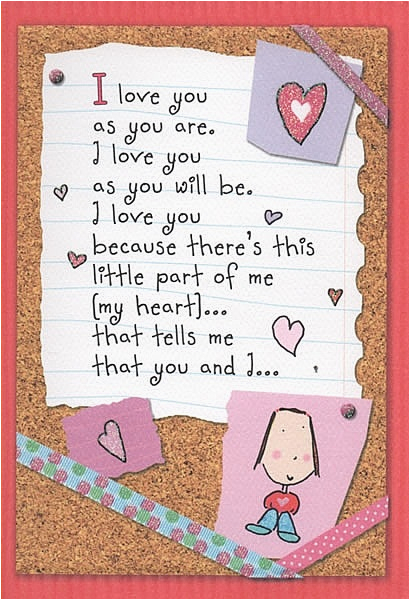 I love you
as you are.
I love you
as you will be.
I love you
because there's this
little part of me
(my heart)...
that tells me
that you and I...